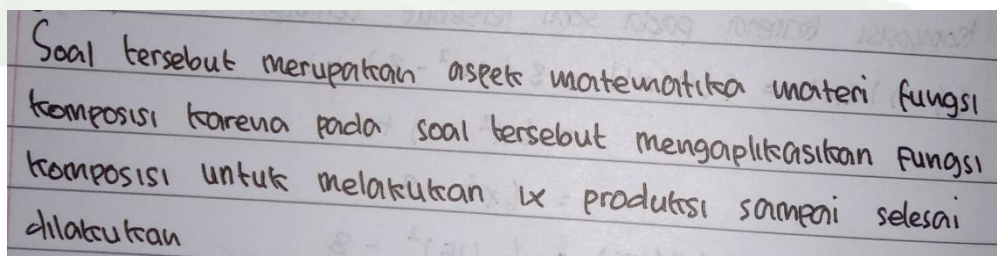 Soal tersebut merupakan aspek matematika materi fungsi
komposisi karena pada soal tersebut mengaplikasikan fungsi
komposisi untuk melakukan 1x produksi sampai selesai
dilakukan